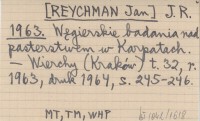 [REYCHMAN Jan] J. R.
1963. Węgierskie badania nad
pasterstwem w Karpatach.
— Wierchy (Kraków) t. 32, r.
1963, druk 1964, s. 245-246.
MT, TM, WHP